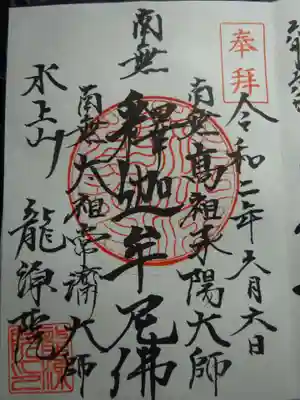 奉拜
令和二年六月六日
南無高祖承陽大師
南無釋迦牟尼佛
南無太祖常濟大師
水上山
龍源院